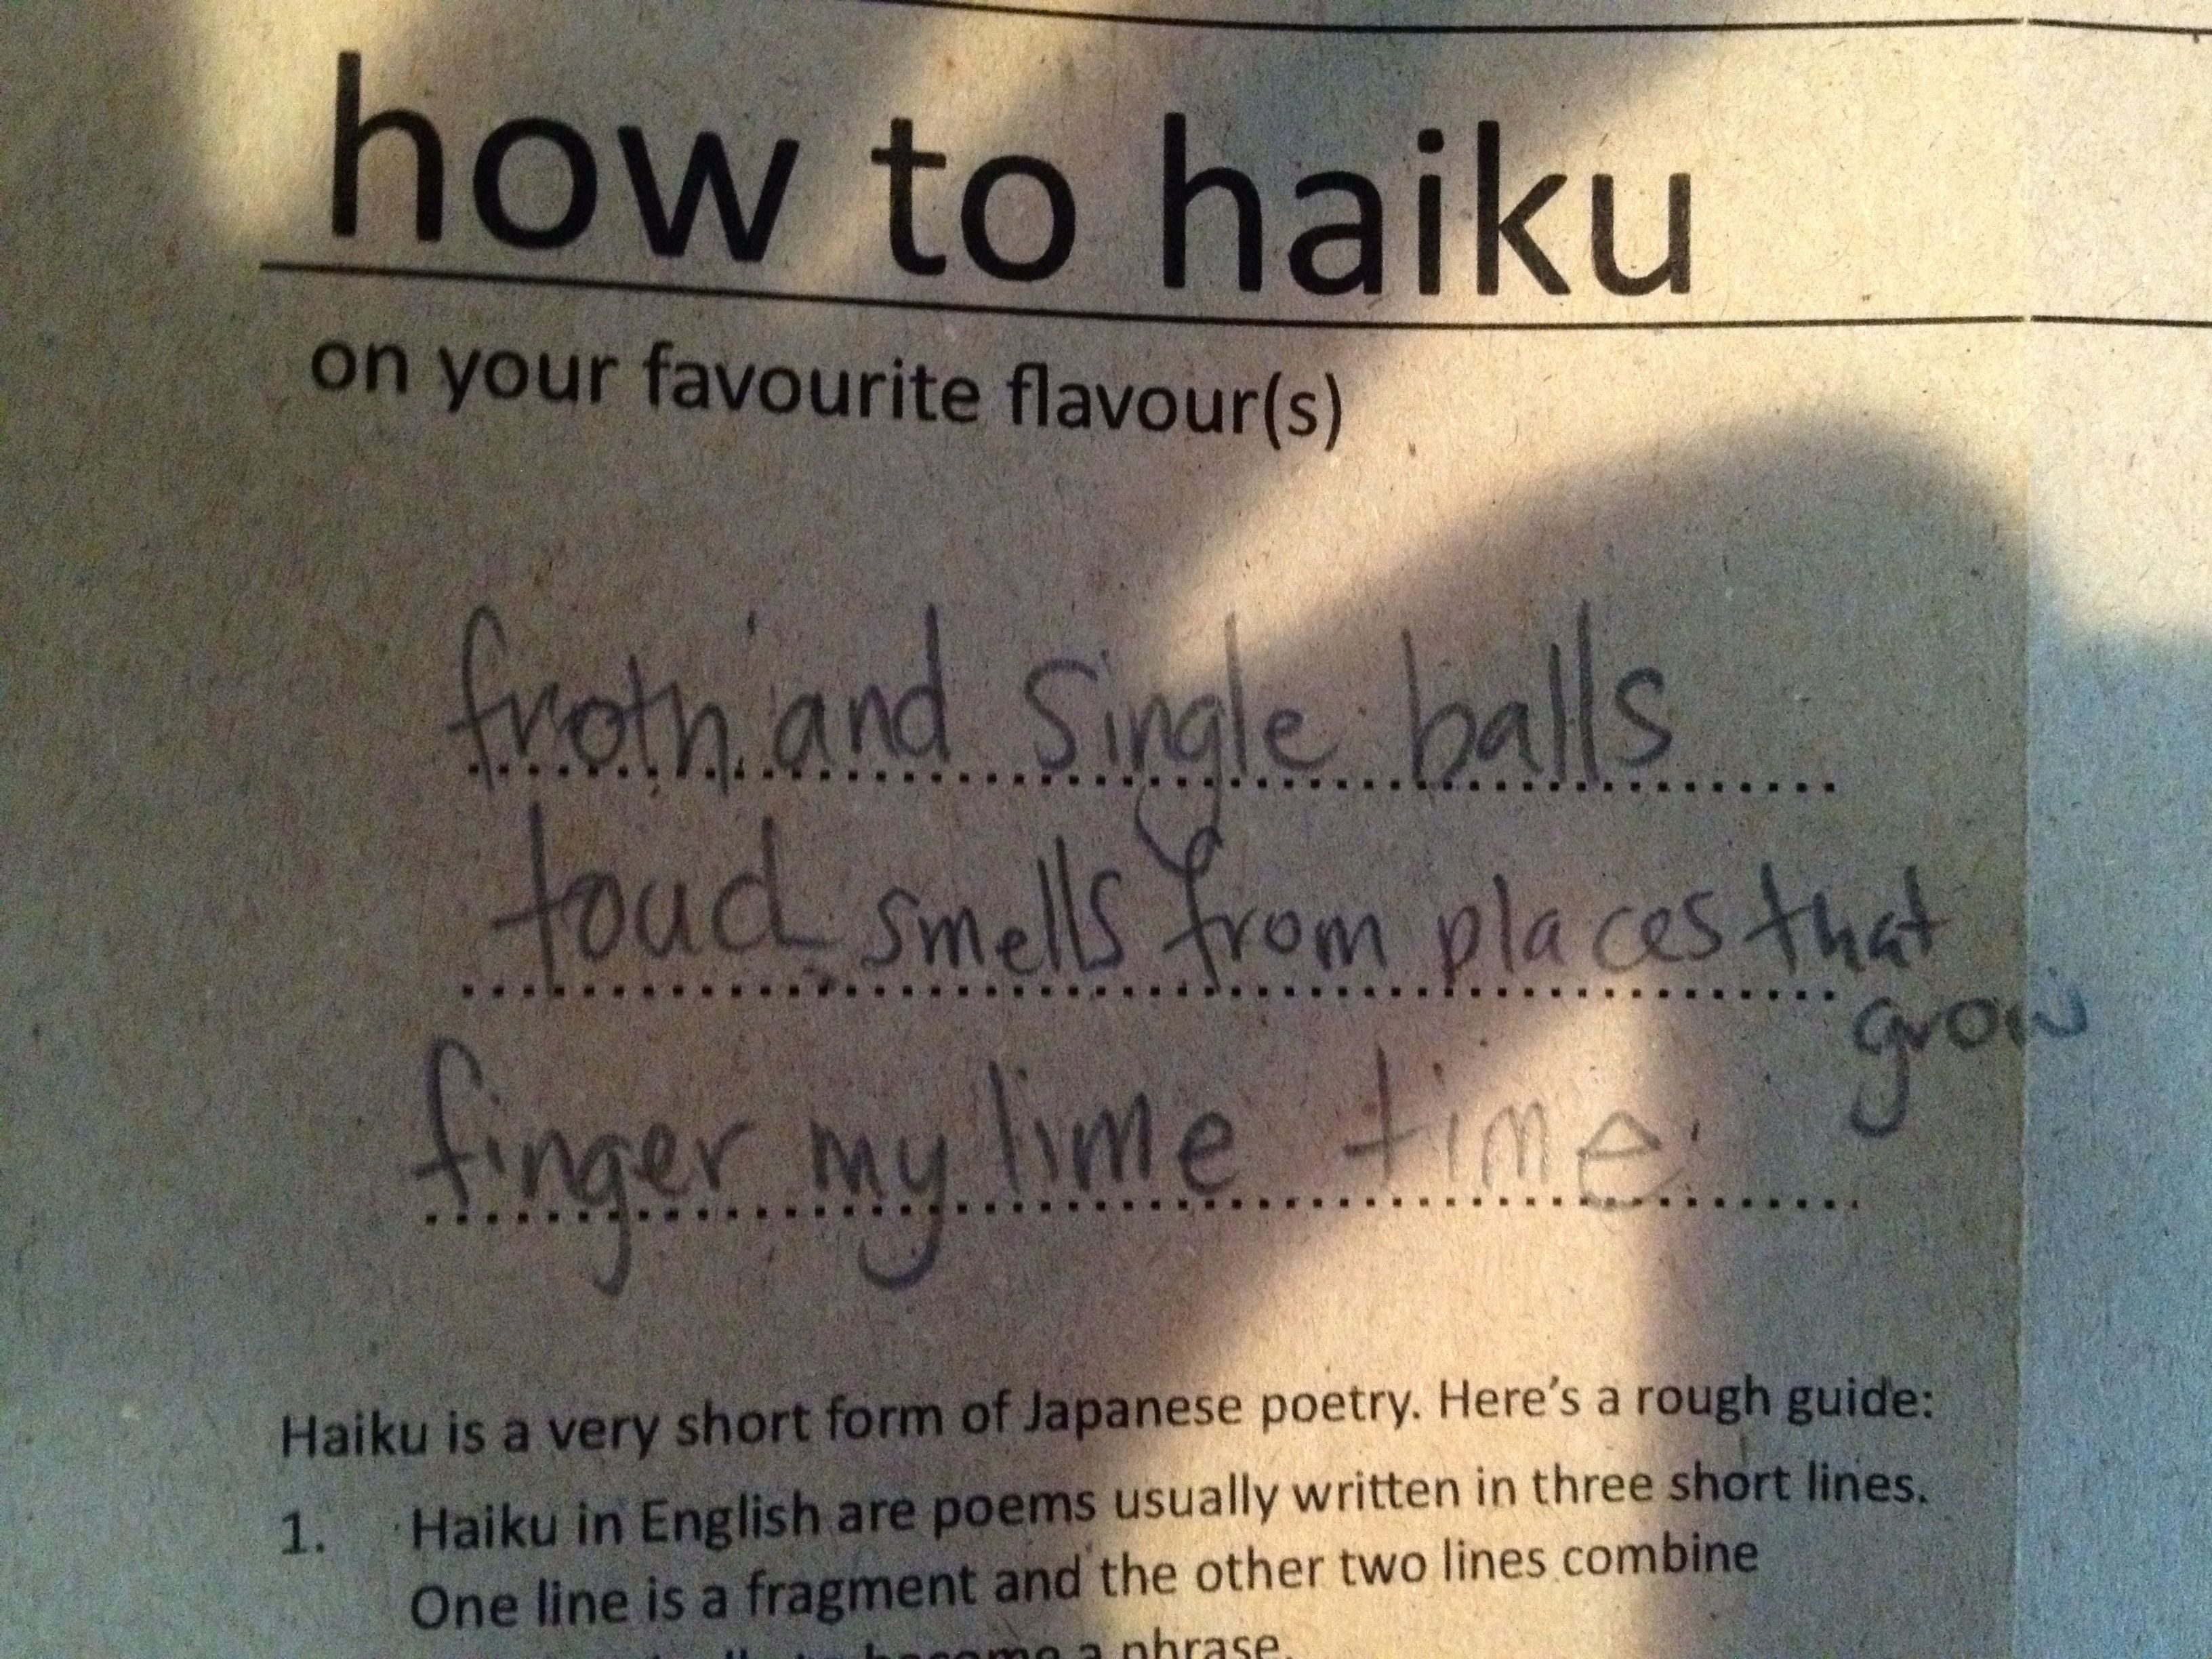 how to haiku
on your favourite flavour(s)
froth and single balls
touch smells from places that
grow
finger my lime time.
Haiku is a very short form of Japanese poetry. Here's a rough guide:
1. Haiku in English are poems usually written in three short lines.
One line is a fragment and the other two lines combine
to become a phrase.